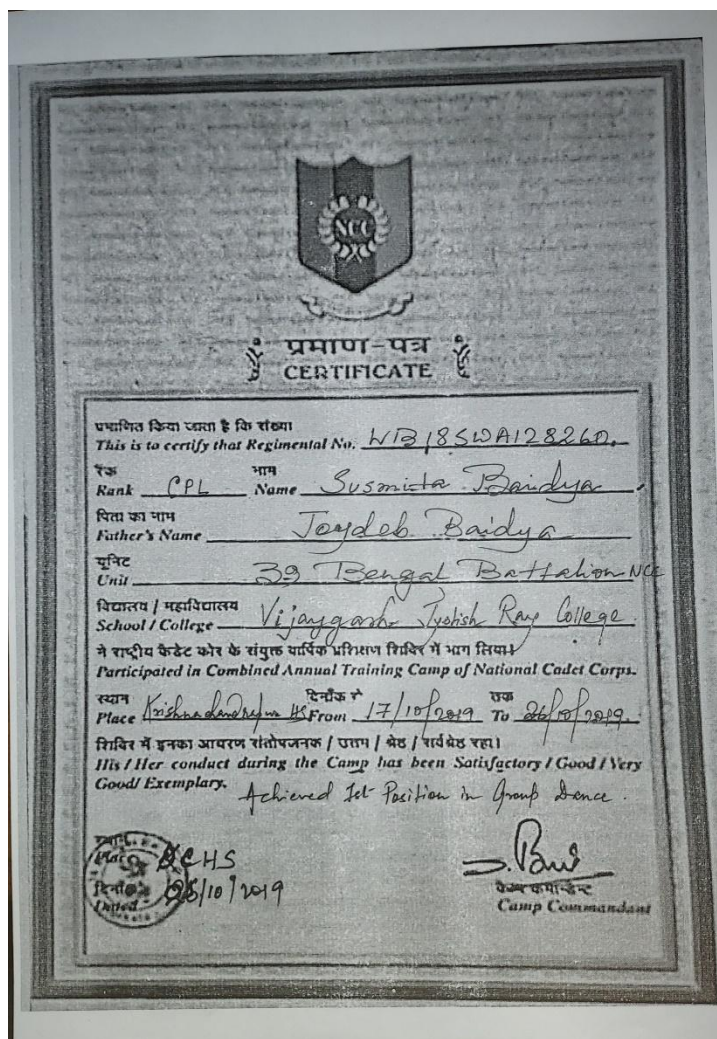 NCC
प्रमाण-पत्र
CERTIFICATE
प्रमाणित किया जाता है कि संख्या
This is to certify that Regimental No. WB18SWA128260.
रैंक नाम
Rank CPL Name Susmita Baidya
पिता का नाम
Father's Name Joydeb Baidya
यूनिट
Unit 39 Bengal Battalion NCC
विद्यालय / महाविद्यालय
School / College Vijaygarh Jyotish Ray College
ने राष्ट्रीय कैडेट कोर के संयुक्त वार्षिक प्रशिक्षण शिविर में भाग लिया।
Participated in Combined Annual Training Camp of National Cadet Corps.
स्थान दिनाँक से तक
Place Krishnachandrapur HS From 17/10/2019 To 26/10/2019.
शिविर में इनका आचरण संतोषजनक / उत्तम / श्रेष्ठ / सर्वश्रेष्ठ रहा।
His / Her conduct during the Camp has been Satisfactory / Good / Very
Good/ Exemplary.
Achieved 1st Position in Group Dance.
स्थान
Place KCHS
दिनाँक
Dated /10/2019
कैम्प कमान्डेन्ट
Camp Commandant